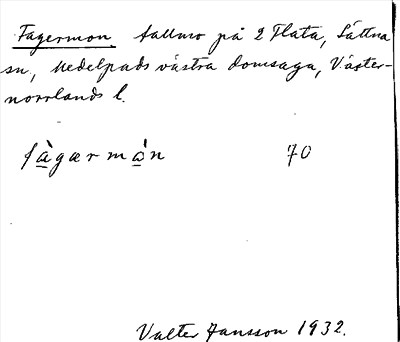 Fagermon, tallmo på 2 Flata, Sättna
sn, Medelpads västra domsaga, Väster-
norrlands l.
fàgærmån 70
Valter Jansson 1932.